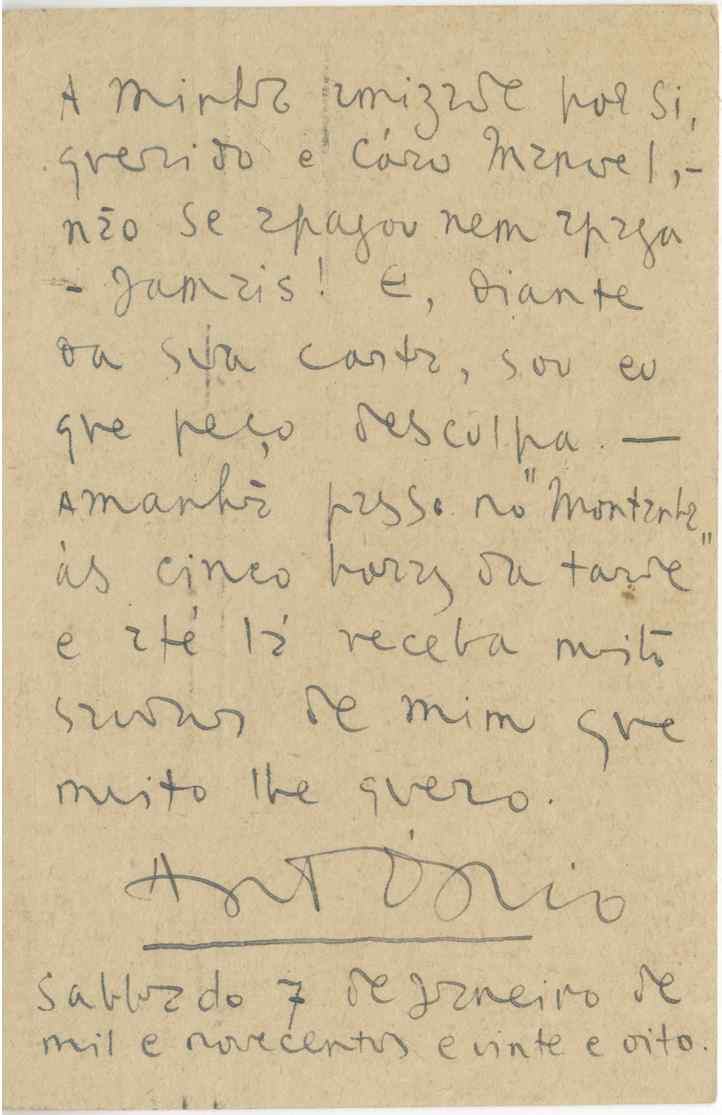 A minha amizade por si,
querido e Cáro Manuel, -
não se apagou nem apaga
- Jamais! E, diante
da sua carta, sou eu
que peço desculpa. —
Amanhã passo no "Montanha"
ás cinco horas da tarde
e até lá receba muitas
saudades de mim que
muito lhe quero.
António
Sabbado 7 de Janeiro de
mil e novecentos e vinte e oito.